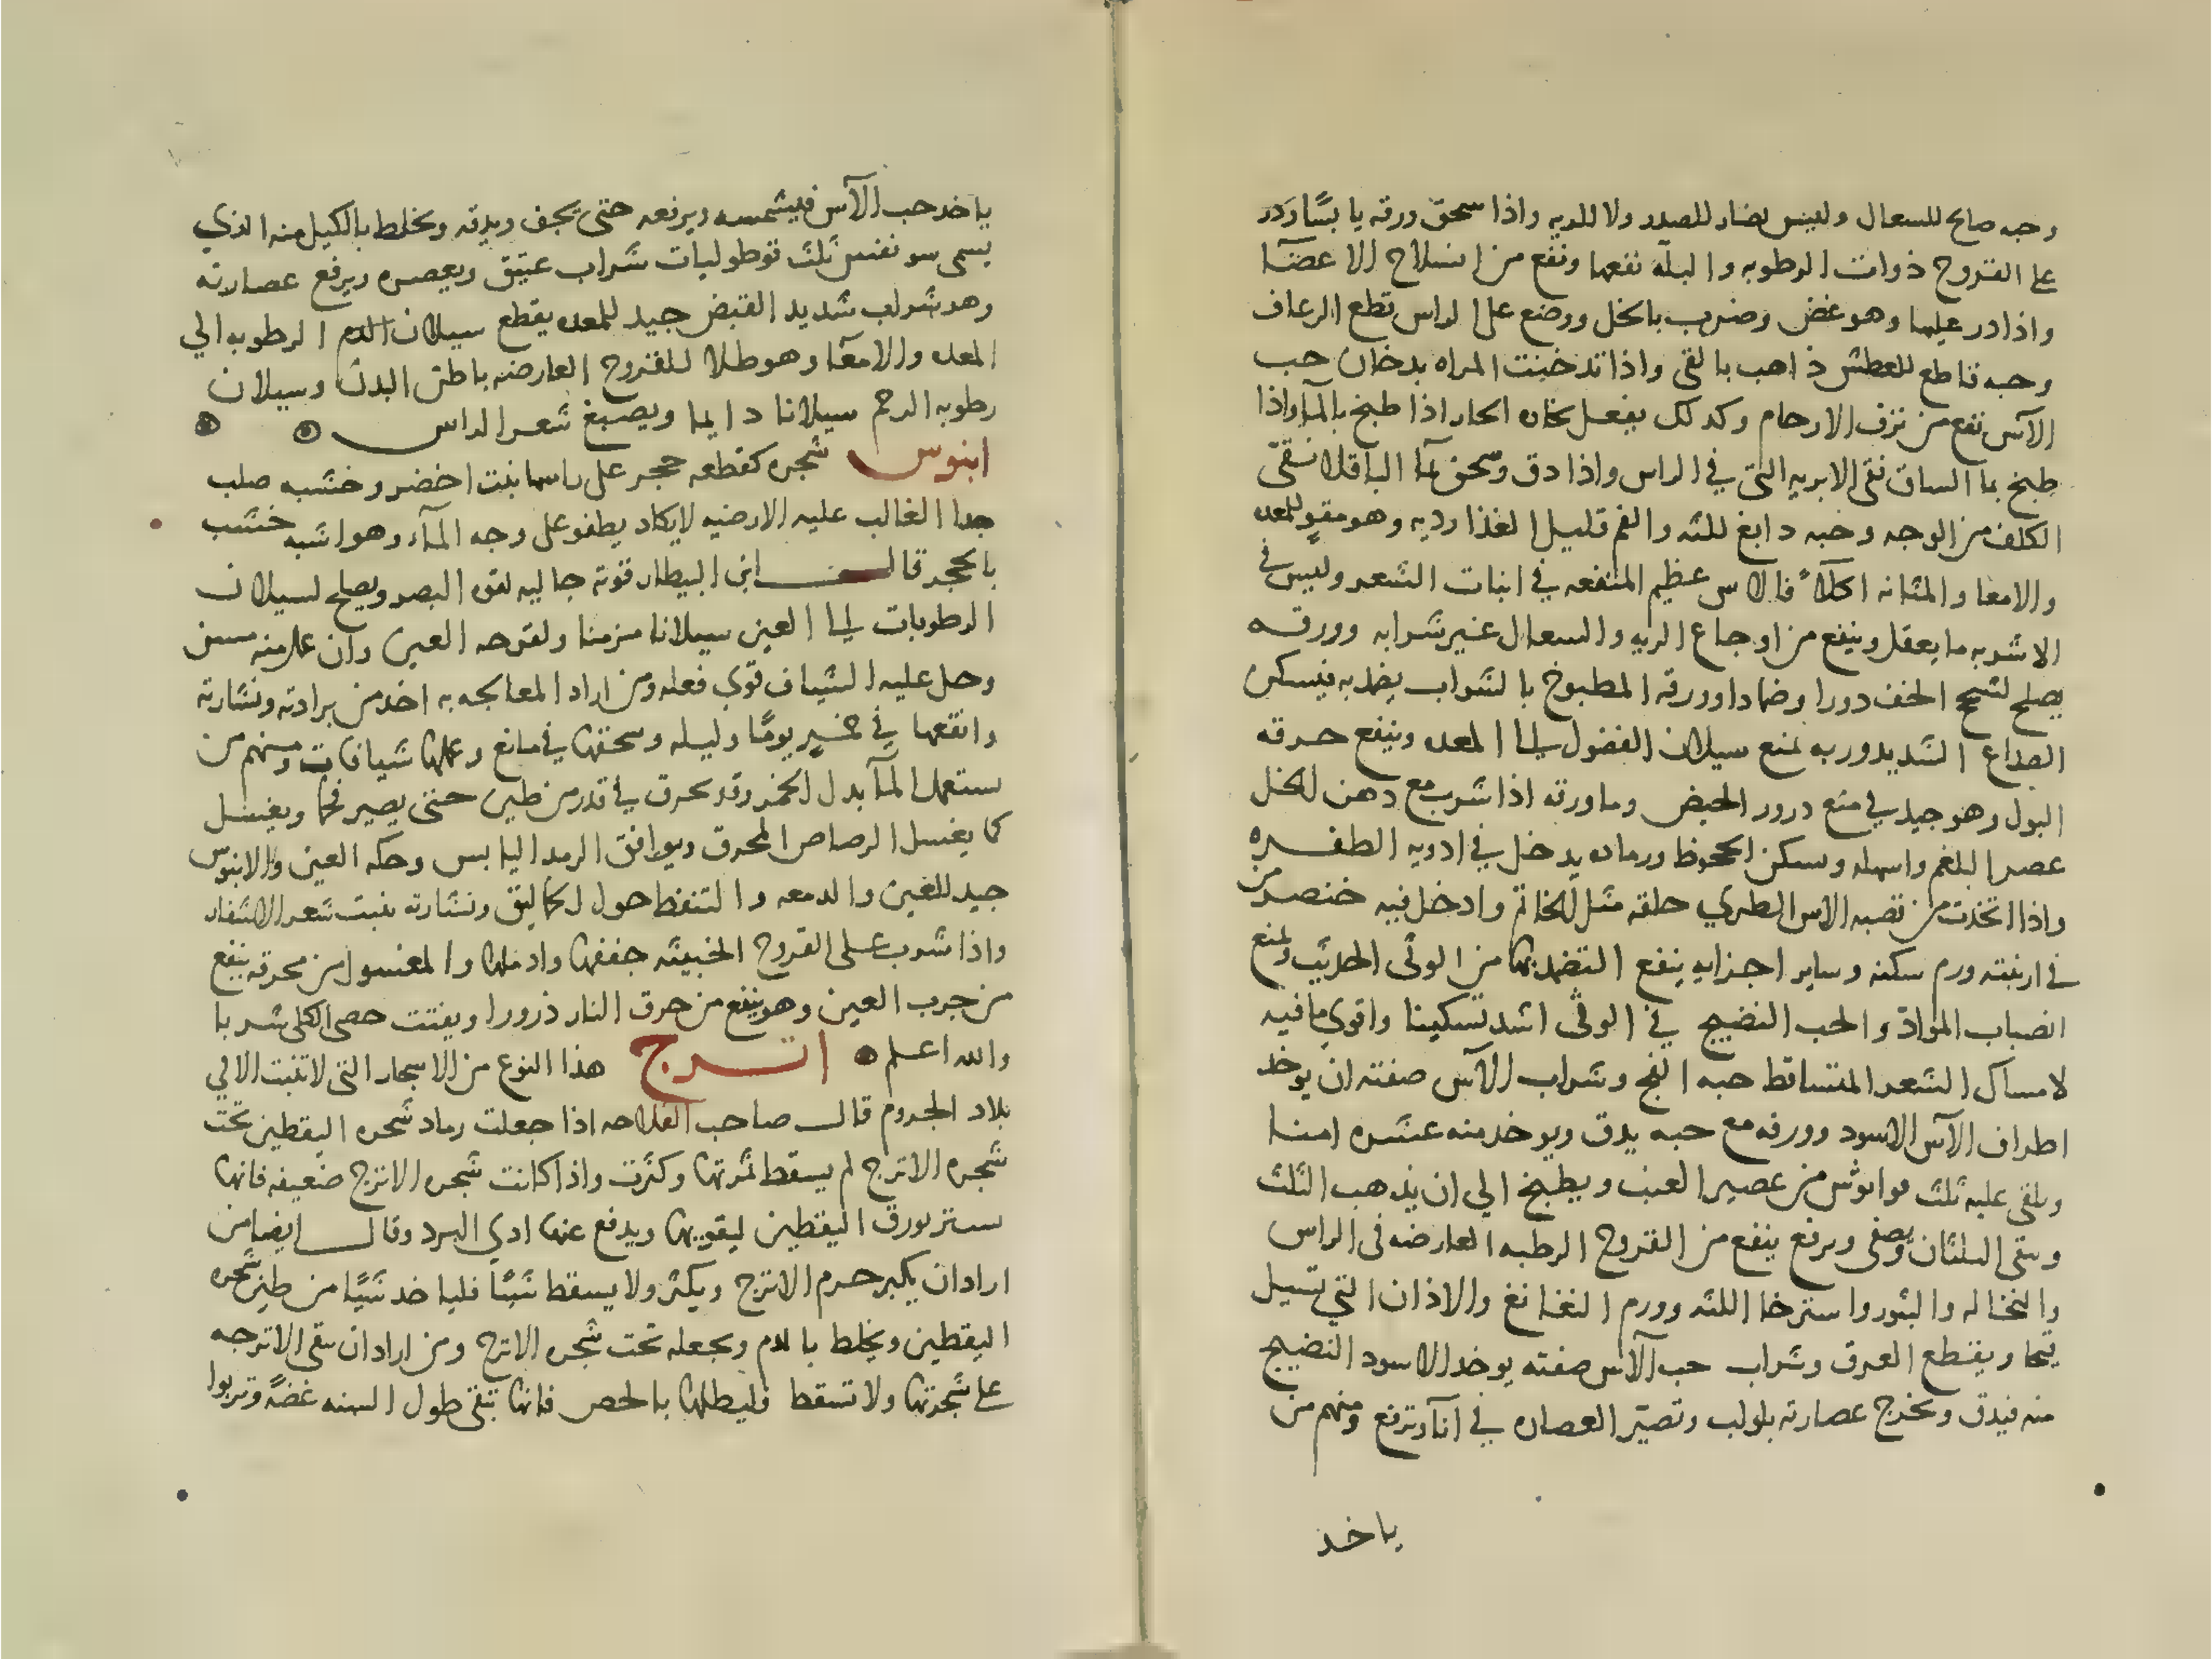 وحبه صالح للسعال وليس بضار للصدر ولا للريه واذا سحق ورقه يابسًا وذر
على القروح ذوات الرطوبه والبلة نفعها ونفع من انسلاخ الاعضآ
واذا در عليها وهو غض وضرب بالخل ووضع على الراس قطع الرعاف
وحبه قاطع للعطش ذاهب بالقى واذا تدخنت المراه بدخان حب
الآس نفع من نزف الارحام وكدلك يفعل بخاره الحار اذا طبخ بالمآ واذا
طبخ بما الساق نقى الابريه التى في الراس واذا دق وسحق بمآ الباقلا نقى
الكلف من الوجه وحبه دابغ للثه والفم قليل الغذا رديه وهو مقو للمعده
والامعا والمثانه اكلاً فالاس عظيم المنفعه في انبات الشعر وليس في
الاشربه ما يعقل وينفع من اوجاع الريه والسعال غير شرابه وورقه
يصلح لسحج الخف درورا وضمادا وورقه المطبوخ بالشراب يضمد به فيسكن
الصداع الشديد وربه يمنع سيلان الفضول الى المعده وينفع حرقه
البول وهو جيد في منع درور الحيض وما ورقه اذا شرب مع دهن الخل
عصر البلغم واسهله وسكن الجحوظ ورماده يدخل في ادويه الطفره
واذا اتخذت من قضبه الاس الطري حلقه مثل الخاتم وادخل فيه خنصر من
في اربيته ورم سكنه وساير اجزايه ينفع التضميد بها من الوثى الحديث ويمنع
انصباب المواد والحب النضيج في الوثى اشد تسكينا واقوي ما فيه
لامساك الشعر المتساقط حبه الفج وشراب الآس صفته ان يوخد
اطراف الآس الاسود وورقه مع حبه يدق ويوخد منه عشره امنا
ويلقى عليه ثلث من عصير العنب ويطبخ الي ان يذهب الثلث
ويبقى الثلثان ويصفى ويرفع ينفع من القروح الرطبه العارضه فى الراس
والنخاله والبثور واسترخا اللثه وورم النغانغ والاذان التي تسيل
قيحا ويقطع العرق وشراب حب الآس صفته يوخد الاسود النضيج
منه فيدق وتخرج عصارته بلولب وتصيّر العصاره في انآ وترفع ومنهم من
ياخد
ياخد حب الآس فيشمسه ويرفعه حتى يجف ويدقه ويخلط بالكيل منه الذي
يسمى سونفس ثلث قوطوليات شراب عتيق ويعصره ويرفع عصارته
وهد شراب شديد القبض جيد للمعده يقطع سيلان الدم الرطوبه الي
المعده والامعآ وهو طلا للقروح العارضه باطن البدن وسيلان
رطوبه الرحم سيلانا دايما ويصبغ شعر الراس
ابنوس شجره كقطعه حجر على راسها نبت اخضر وخشبه صلب
جدا الغالب عليه الارضيه لا يكاد يطفو على وجه المآء وهو اشبه خشب
بالحجر قال ابن البيطار قوته جاليه لقوه البصر ويصلح لسيلان
الرطوبات الى العين سيلانا مزمنا ولقرحه العين وان عمل منه مسن
وحل عليه الشياف قوي فعله ومن اراد المعالجه به اخد من برادته ونشارته
وانقعها في خمر يومًا وليله وسحقها في مانع وعملها شيافات ومنهم من
ستعمل المآ بدل الخمر وقد تحرق في قدر من طين حتى يصير فحما ويغسل
كما يغسل الرصاص المحرق ويوافق الرمد اليابس وحكه العين والابنوس
جيد للعين والدمعه والتنفط حول الحماليق ونشارته ينبت شعر الاشفار
واذا شرب على القروح الخبيثه جففها وادملها والمغسول من محرقه ينفع
من جرب العين وهو ينفع من حرق النار ذرورا ويفتت حصى الكلى شربا
والله اعلم اترج هذا النوع من الاشجار التى لا تنبت الا في
بلاد الجروم قال صاحب الفلاحه اذا جعلت رماد شجره اليقطين تحت
شجره الاترج لم يسقط ثمرتها وكثرت واذا كانت شجره الاترج ضعيفه فانها
ستر بورق اليقطين ليقويها ويدفع عنها ادي البرد وقال ايضا من
اراد ان يكبر حرم الاترج ويكثر ولا يسقط شيئا فلياخد شيًا من طين شجره
اليقطين ويخلط بالدم ويجعله تحت شجره الاترج ومن اراد ان يبقى الاترجه
على شجرتها ولا تسقط فليطلها بالجص فانها تبقى طول السنه غضةً وتربوا